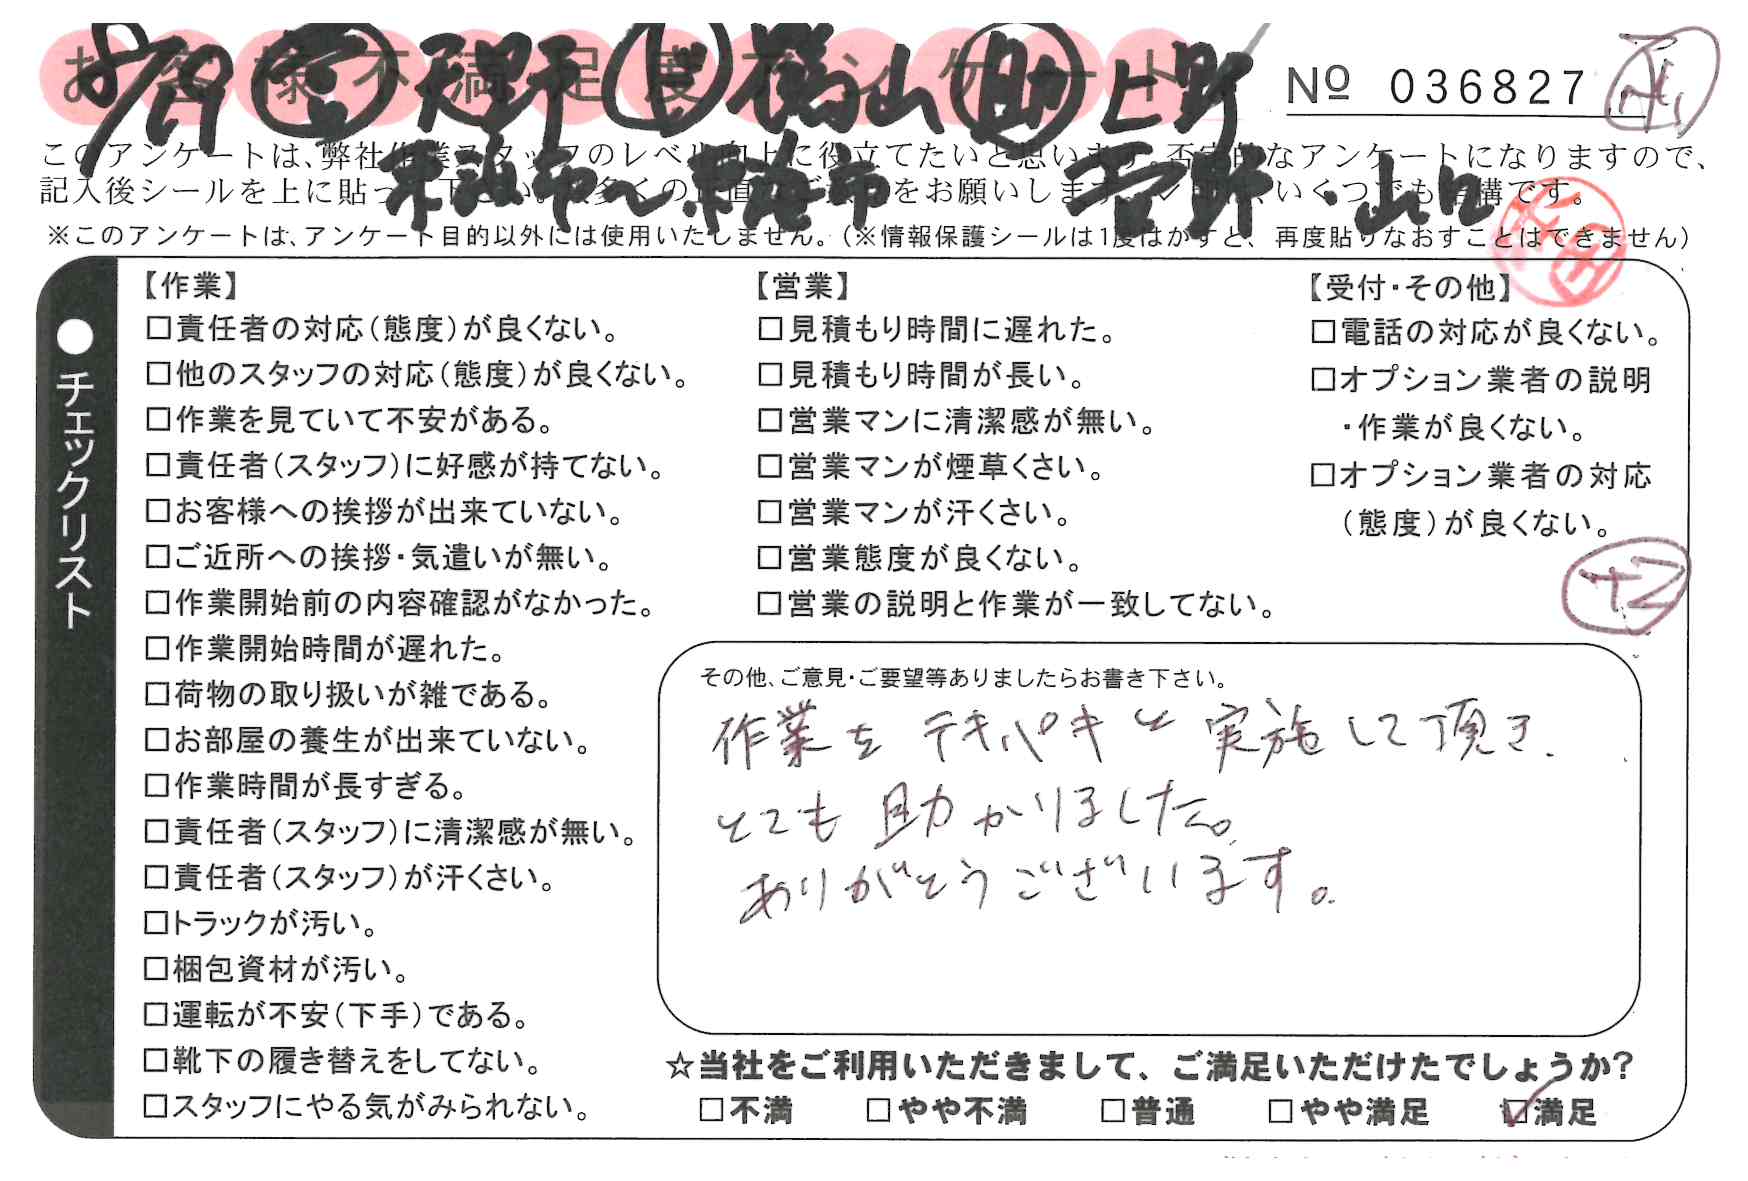 お客様不満足度アンケート
8/19 天野 横山 助 上野
No 036827
このアンケートは、弊社作業スタッフのレベル向上に役立てたいと思います。否定的なアンケートになりますので、
記入後シールを上に貼って下さい。数多くの正直なご意見をお願いします。
いくつでも結構です。
菅野・山口
※このアンケートは、アンケート目的以外には使用いたしません。(※情報保護シールは1度はがすと、再度貼りなおすことはできません)
●チェックリスト
【作業】
□責任者の対応(態度)が良くない。
□他のスタッフの対応(態度)が良くない。
□作業を見ていて不安がある。
□責任者(スタッフ)に好感が持てない。
□お客様への挨拶が出来ていない。
□ご近所への挨拶・気遣いが無い。
□作業開始前の内容確認がなかった。
□作業開始時間が遅れた。
□荷物の取り扱いが雑である。
□お部屋の養生が出来ていない。
□作業時間が長すぎる。
□責任者(スタッフ)に清潔感が無い。
□責任者(スタッフ)が汗くさい。
□トラックが汚い。
□梱包資材が汚い。
□運転が不安(下手)である。
□靴下の履き替えをしてない。
□スタッフにやる気がみられない。
【営業】
□見積もり時間に遅れた。
□見積もり時間が長い。
□営業マンに清潔感が無い。
□営業マンが煙草くさい。
□営業マンが汗くさい。
□営業態度が良くない。
□営業の説明と作業が一致してない。
【受付・その他】
□電話の対応が良くない。
□オプション業者の説明
・作業が良くない。
□オプション業者の対応
(態度)が良くない。
+2
その他、ご意見・ご要望等ありましたらお書き下さい。
作業をテキパキと実施して頂き、
とても助かりました。
ありがとうございます。
☆当社をご利用いただきまして、ご満足いただけたでしょうか?
□不満 □やや不満 □普通 □やや満足 ☑満足